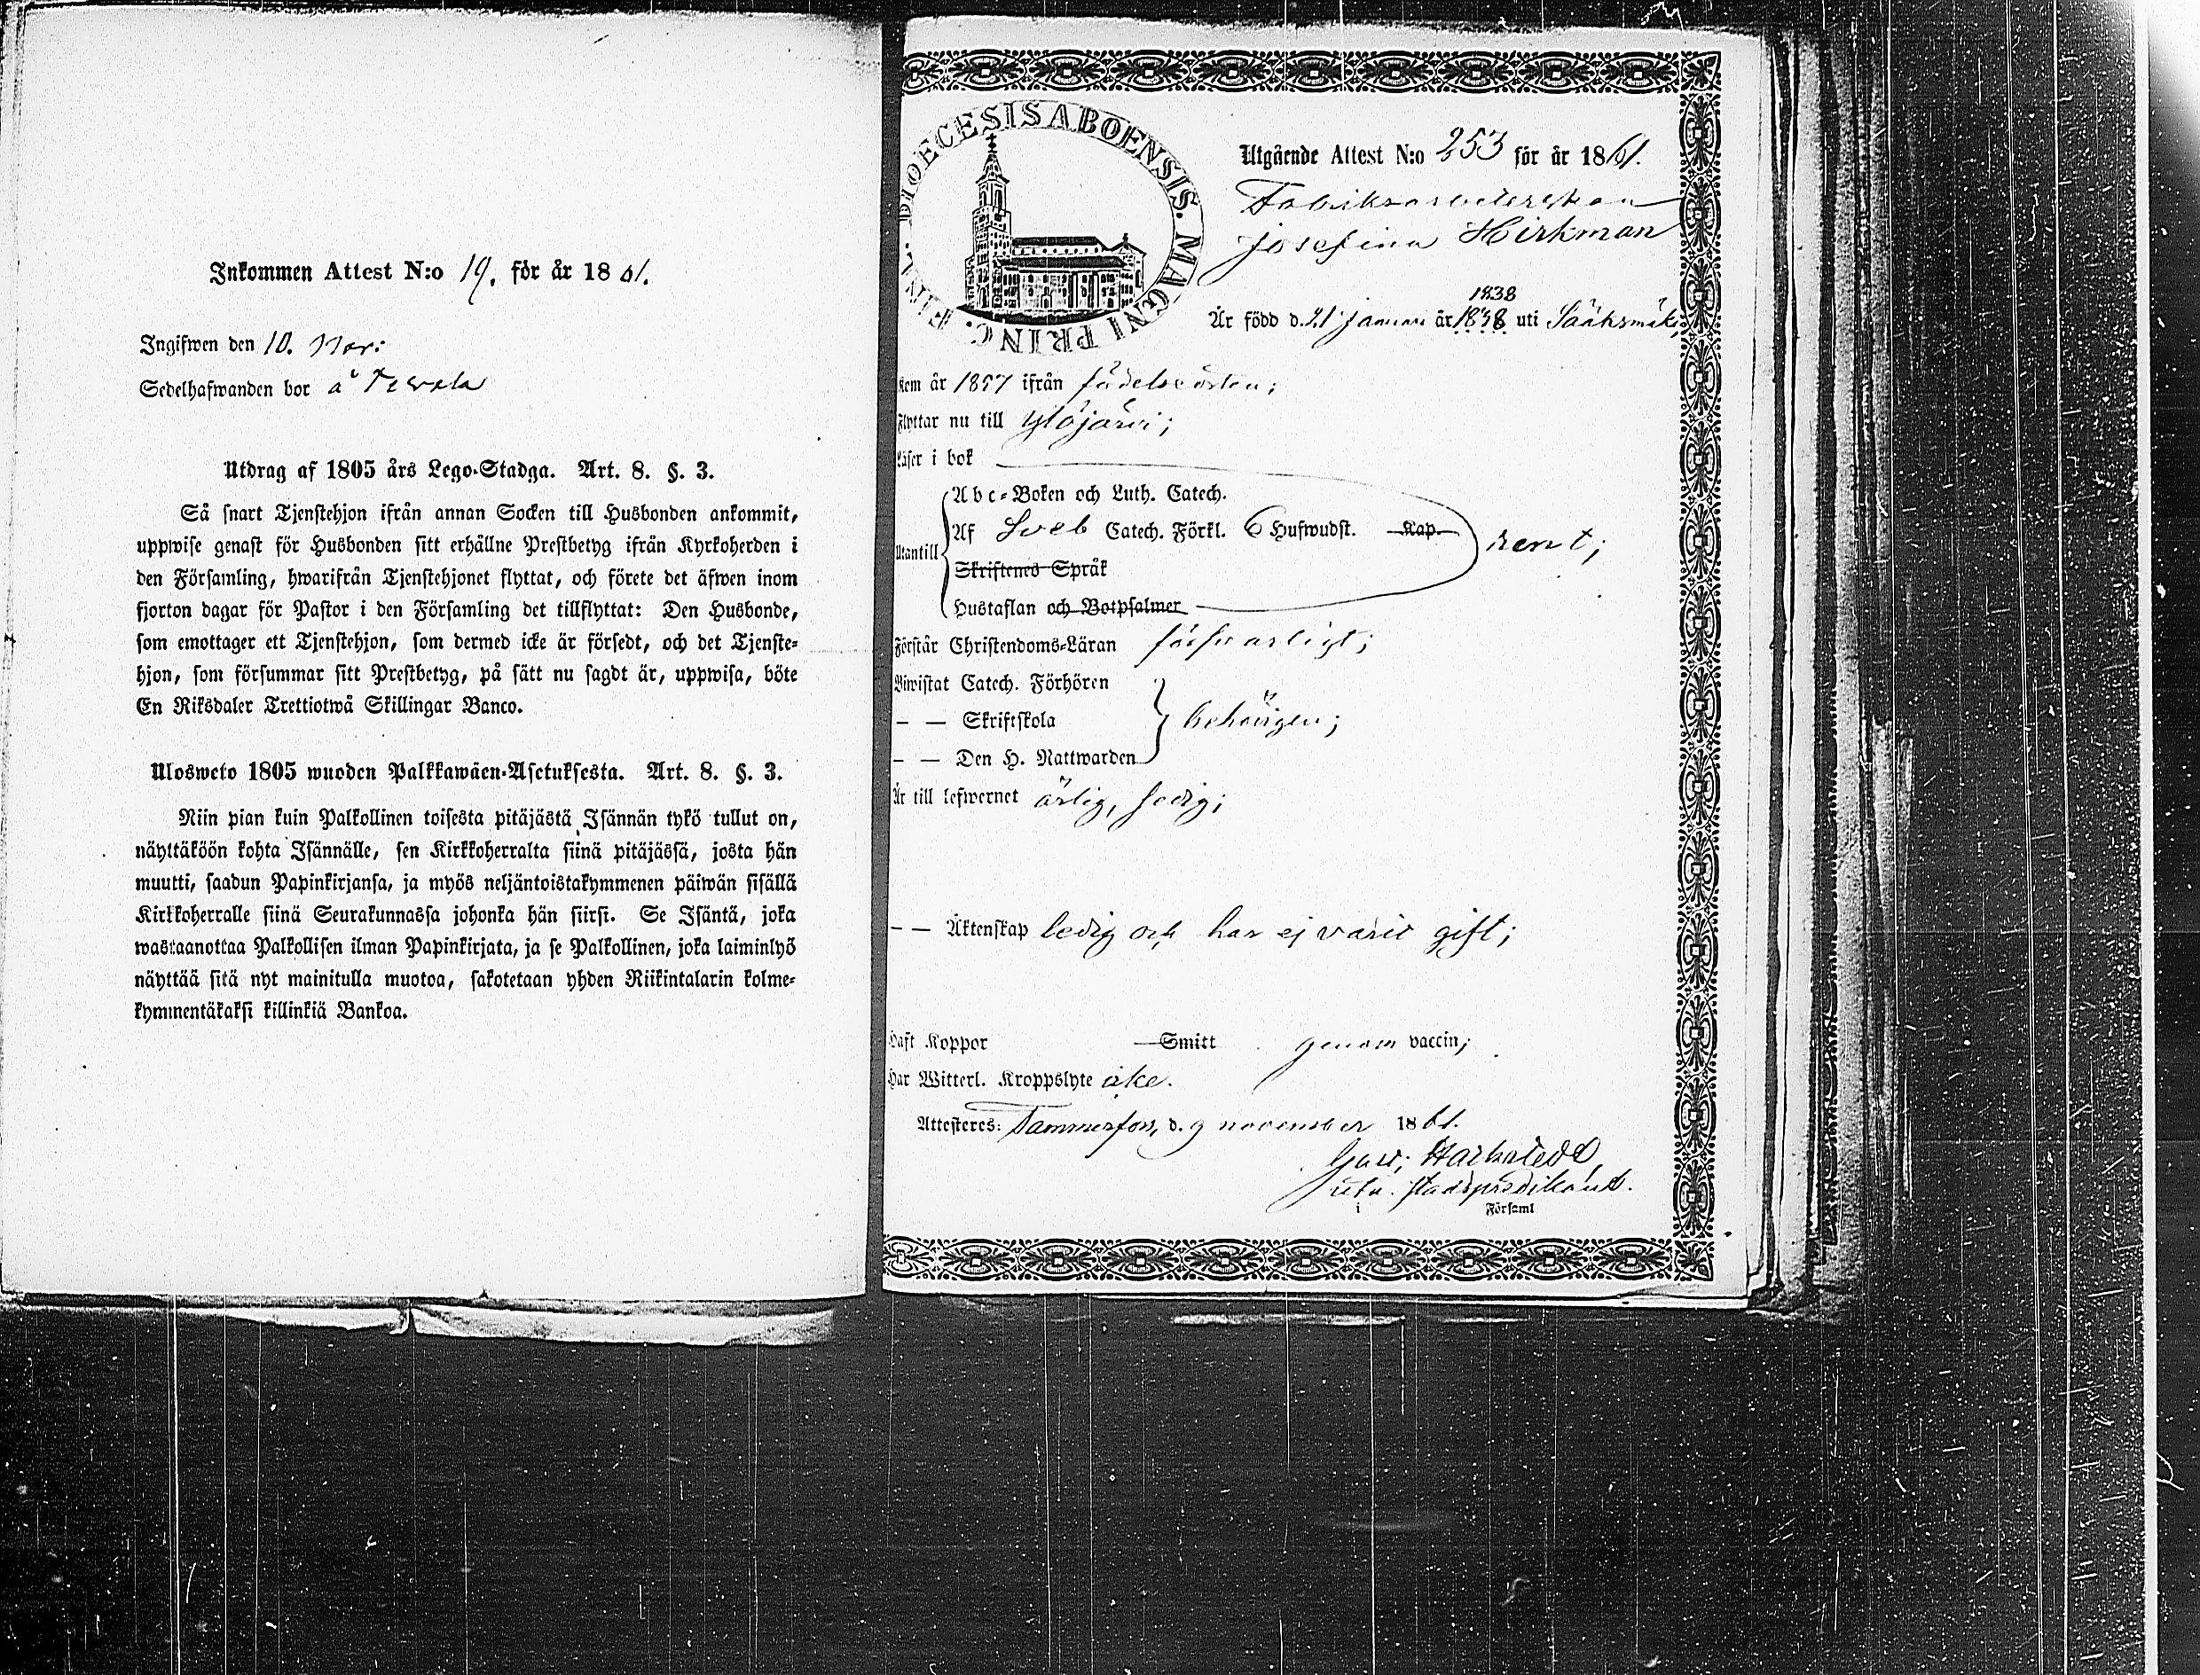 Inkommen Attest N:o 19. för år 1861.
Ingifwen den 10. Nov:
Sedelhafwanden bor å
Utdrag af 1805 års Lego-Stadga. Art. 8. §. 3.
Så snart Tjenstehjon ifrån annan Socken till Husbonden ankommit,
uppwise genast för Husbonden sitt erhållne Prestbetyg ifrån Kyrkoherden i
den Församling, hwarifrån Tjenstehjonet flyttat, och förete det äfwen inom
fjorton dagar för Pastor i den Församling det tillflyttat: Den Husbonde,
som emottager ett Tjenstehjon, som dermed icke är försedt, och det Tjenste-
hjon, som försummar sitt Prestbetyg, på sätt nu sagdt är, uppwisa, böte
En Riksdaler Trettiotwå Skillingar Banco.
Ulosweto 1805 wuoden Palkkawäen-Asetuksesta. Art. 8. §. 3.
Niin pian kuin Palkollinen toisesta pitäjästä Isännän tykö tullut on,
näyttäköön kohta Isännälle, sen Kirkkoherralta siinä pitäjässä, josta hän
muutti, saadun Papinkirjansa, ja myös neljäntoistakymmenen päiwän sisällä
Kirkkoherralle siinä Seurakunnassa johonka hän siirsi. Se Isäntä, joka
wastaanottaa Palkollisen ilman Papinkirjata, ja se Palkollinen, joka laiminlyö
näyttää sitä nyt mainitulla muotoa, sakotetaan yhden Riikintalarin kolme-
kymmentäkaksi killinkiä Bankoa.
DIOECESIS ABOENSIS. MAGNI PRINC. FINL.
Utgående Attest N:o 253 för år 1861.
Fabriksarbeterskan
Josefina Hirkman
1838
Är född d. 21 januari år 1838 uti Sääksmäki,
Kom år 1857 ifrån födelseorten;
Flyttar nu till Ylöjärvi;
Läser i bok
Abc-Boken och Luth. Catech.
Utantill Af Sveb Catech. Förkl. 6 Hufwudst. Kap. rent;
Skriftenes Språk
Hustaflan och Botpsalmer
Förstår Christendoms-Läran försvarligt;
Biwistat Catech. Förhören
— — Skriftskola behörigen;
— — Den H. Nattwarden
Är till lefwernet ärlig, sedig;
— — Äktenskap ledig och har ej varit gift;
Haft Koppor Smitt genom vaccin;
Har Witterl. Kroppslyte icke.
Attesteres: Tammerfors, d. 9 november 1861.
stadspredikant.
i Församl